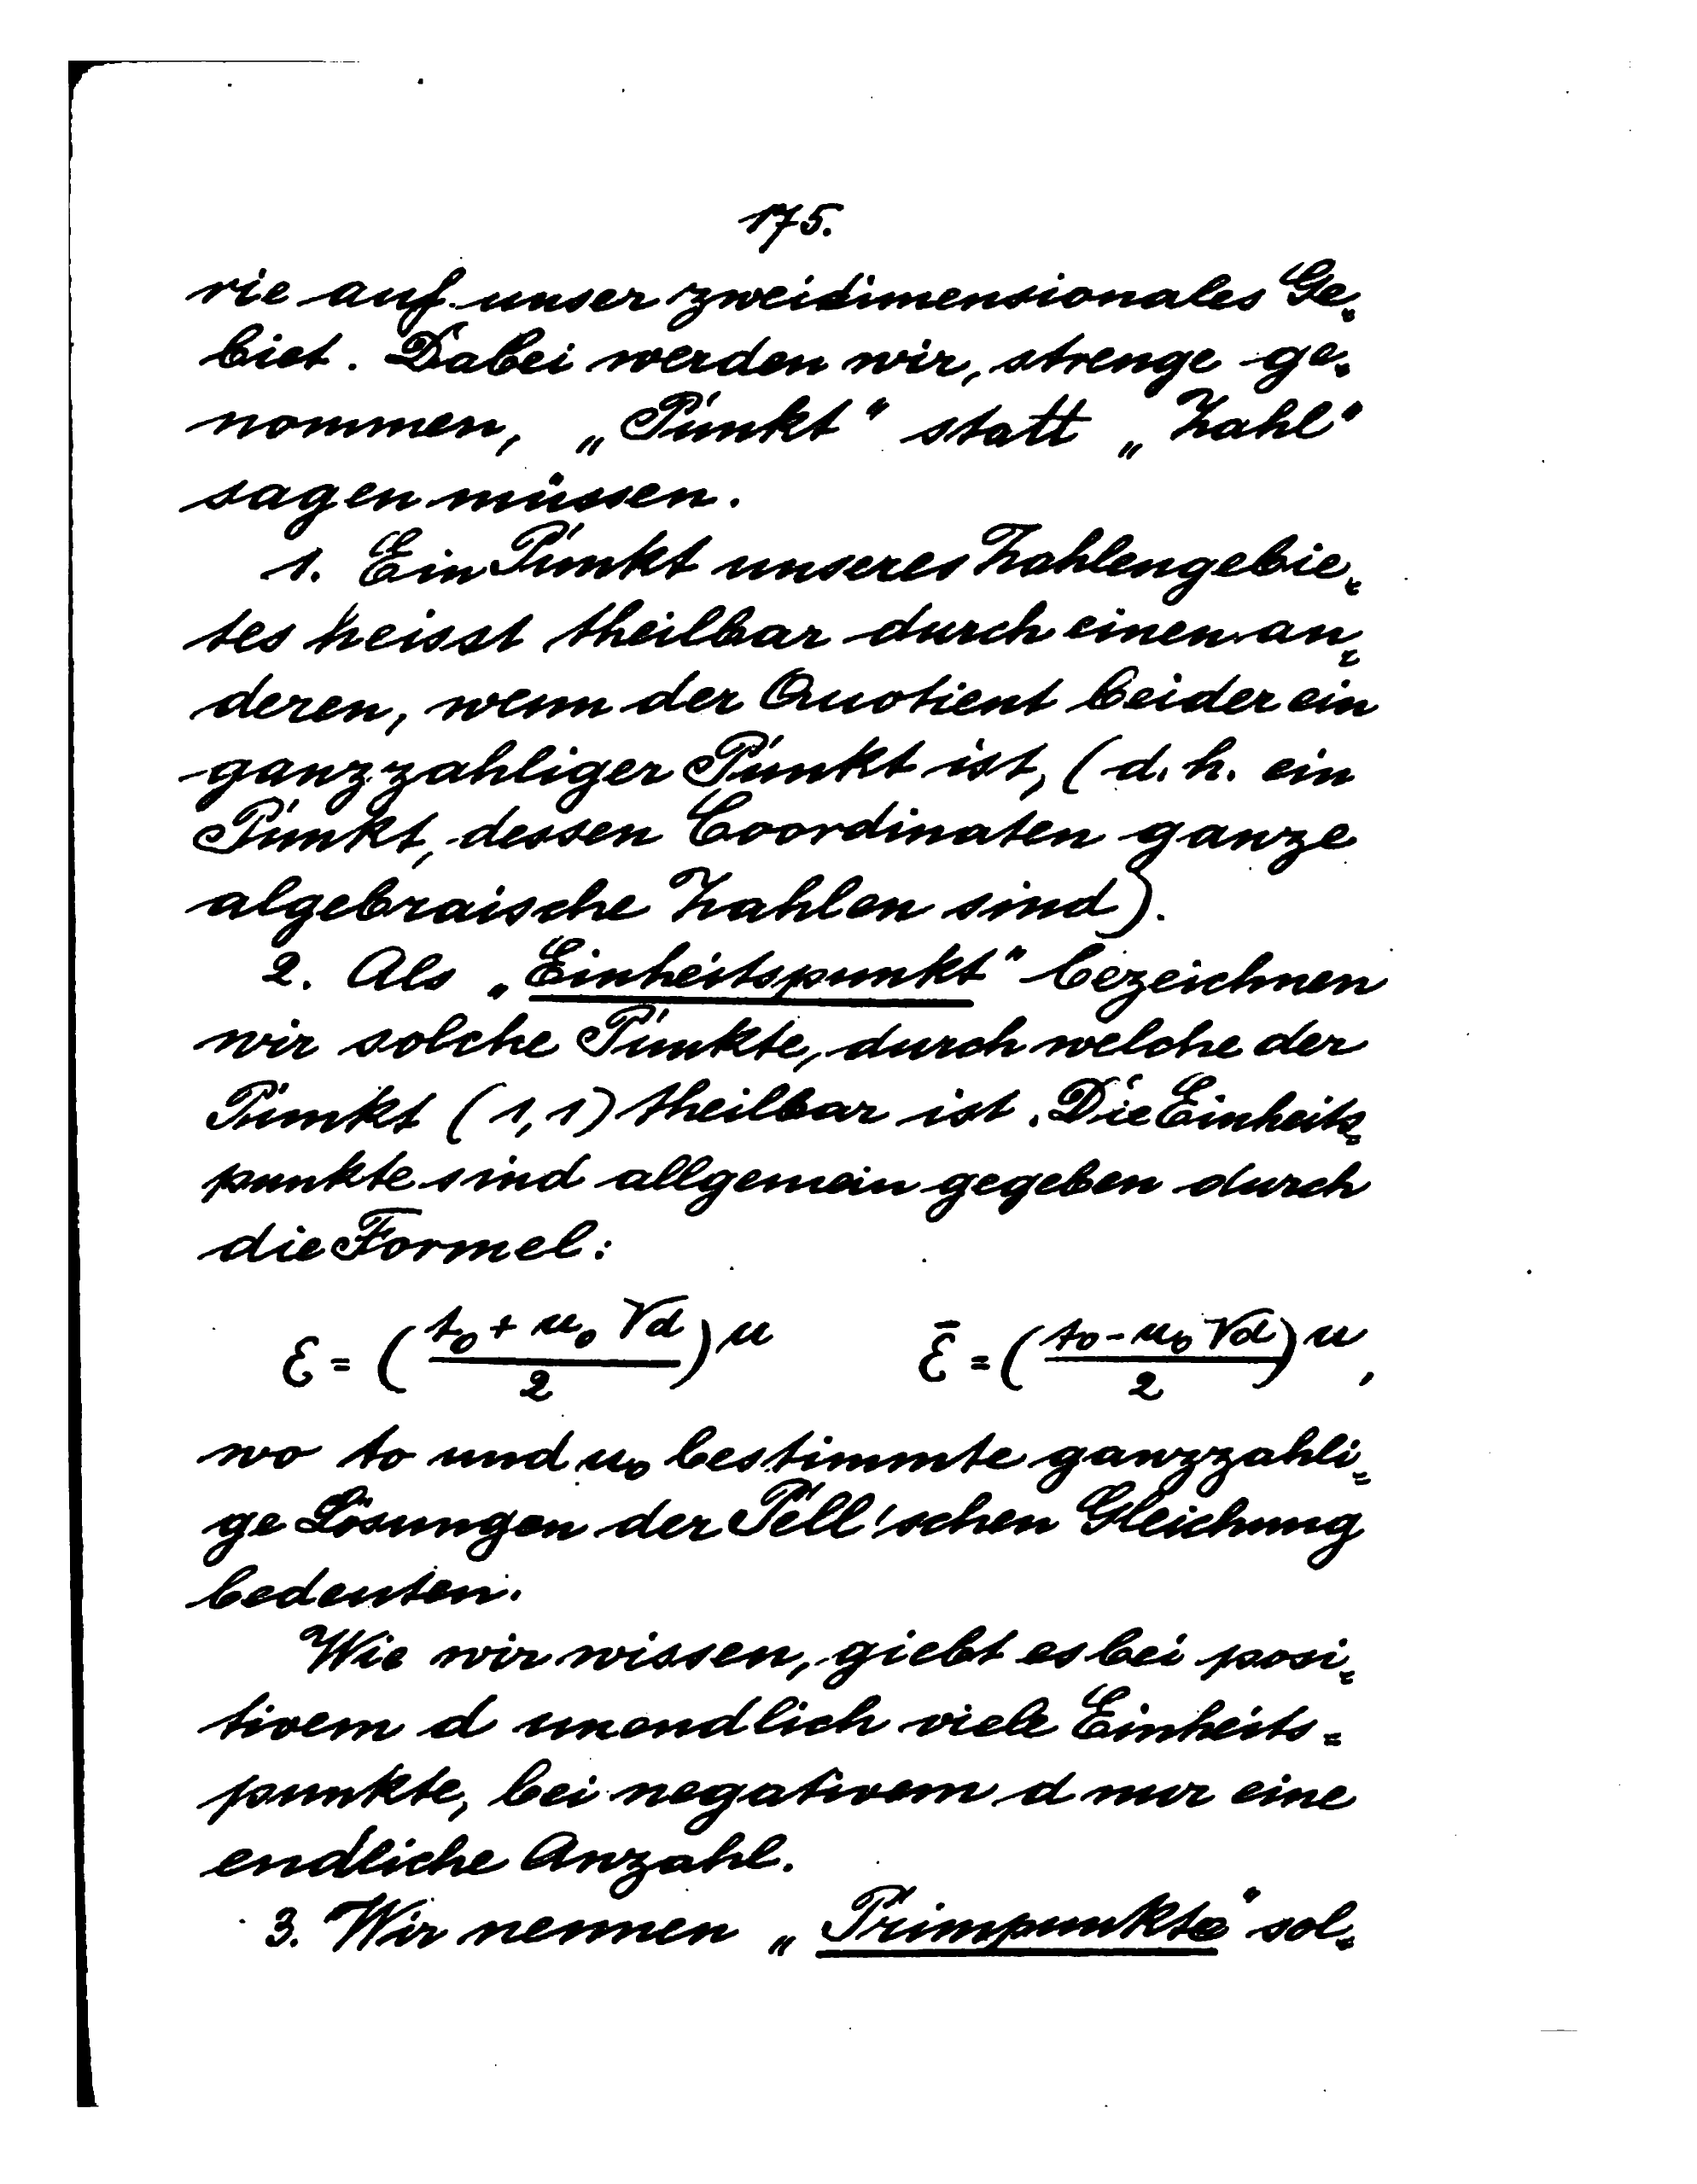 175.
rie auf unser zweidimensionales Ge-
biet. Dabei werden wir, strenge ge-
nommen, „Punkt" statt „Zahl"
sagen müssen.
1. Ein Punkt unseres Zahlengebie-
tes heisst theilbar durch einen an-
deren, wenn der Quotient beider ein
ganzzahliger Punkt ist, (d. h. ein
Punkt, dessen Coordinaten ganze
algebraische Zahlen sind).
2. Als „Einheitspunkt" bezeichnen
wir solche Punkte, durch welche der
Punkt (1,1) theilbar ist. Die Einheits-
punkte sind allgemein gegeben durch
die Formel:
ε = ((t₀ + u₀ √d)/2)ᵘ   ε̄ = ((t₀ - u₀ √d)/2)ᵘ,
wo t₀ und u₀ bestimmte ganzzahli-
ge Lösungen der Pell'schen Gleichung
bedeuten.
Wie wir wissen, giebt es bei posi-
tivem d unendlich viele Einheits-
punkte, bei negativem d nur eine
endliche Anzahl.
3. Wir nennen „Primpunkte" sol-